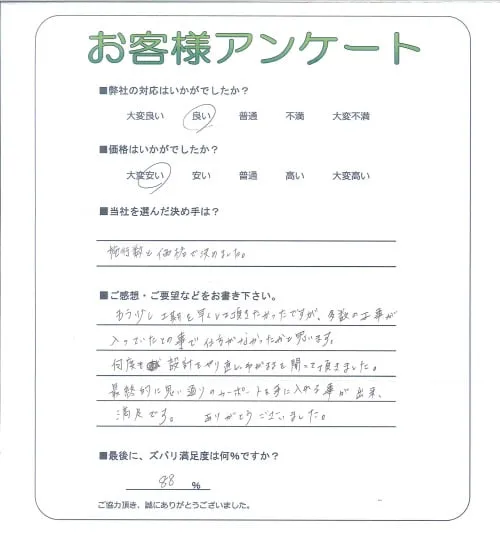 お客様アンケート
■弊社の対応はいかがでしたか？
大変良い 良い 普通 不満 大変不満
■価格はいかがでしたか？
大変安い 安い 普通 高い 大変高い
■当社を選んだ決め手は？
施行数と価格で決めました。
■ご感想・ご要望などをお書き下さい。
もう少し工期を早くして頂きたかったですが、多数の工事が
入っていたとの事で仕方がなかったかと思います。
何度も設計をやり直し、わがままを聞いて頂きました。
最終的に思い通りのカーポートを手に入れる事が出来、
満足です。 ありがとうございました。
■最後に、ズバリ満足度は何%ですか？
88 %
ご協力頂き、誠にありがとうございました。